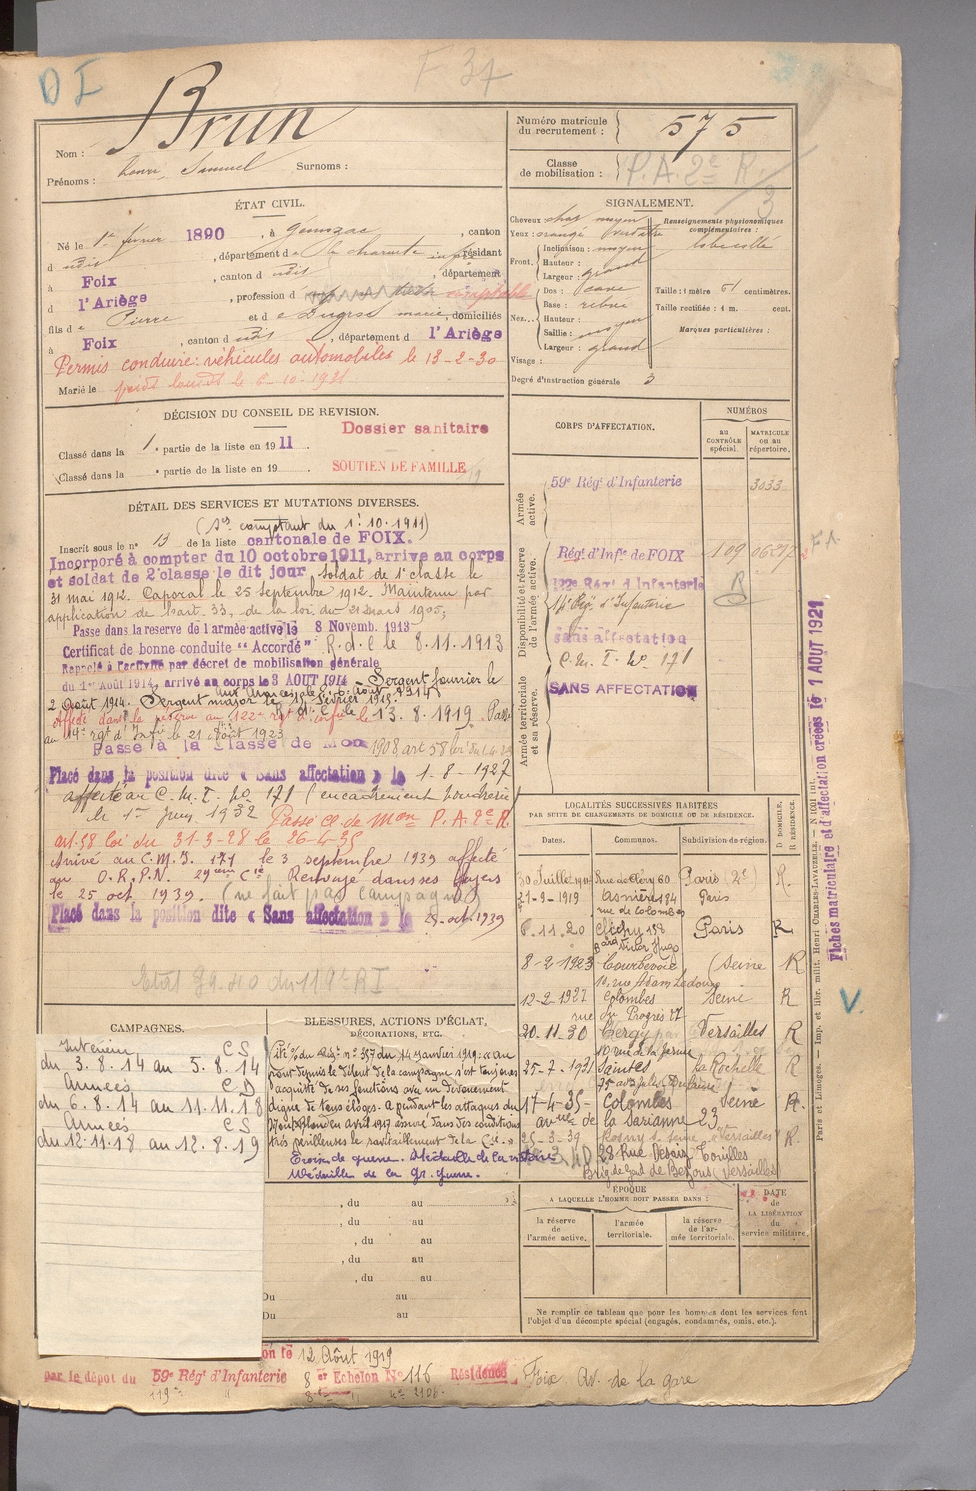 D I
F 37
Nom : Brun
Prénoms : Henri, Samuel Surnoms :
Numéro matricule du recrutement : 575
Classe de mobilisation : P. A. 2e R.
3
ÉTAT CIVIL.
Né le 1er février 1890, à Gémozac, canton
d udit, département de la charente infre, résidant
à Foix, canton d udit, département
d l'Ariège, profession d comptable
fils de Pierre et de Dugros marie, domiciliés
à Foix, canton d udit, département d l'Ariège
Permis conduire véhicules automobiles le 13-2-30
Marié le poids lourds le 6-10-1931
SIGNALEMENT.
Cheveux chat moyen
Yeux : orangé verdâtre
Renseignements physionomiques complémentaires :
lobe collé
Front. Inclinaison : moyen
Hauteur :
Largeur : grand
Nez. Dos : cave
Base : relevé
Hauteur :
Saillie : moyen
Largeur : grand
Visage :
Taille : 1 mètre 61 centimètres.
Taille rectifiée : 1 m. cent.
Marques particulières :
Degré d'instruction générale 3
DÉCISION DU CONSEIL DE REVISION.
Dossier sanitaire
Classé dans la 1e partie de la liste en 1911
Classé dans la e partie de la liste en 19
SOUTIEN DE FAMILLE
DÉTAIL DES SERVICES ET MUTATIONS DIVERSES.
(Scs comptant du 1er 10. 1911)
Inscrit sous le n° 13 de la liste cantonale de FOIX.
Incorporé à compter du 10 octobre 1911, arrive au corps
et soldat de 2e classe le dit jour, Soldat de 1e classe le
31 mai 1912. Caporal le 25 Septembre 1912. Maintenu par
application de l'art. 33, de la loi du 21 mars 1905,
Passé dans la reserve de l'armée active le 8 Novemb. 1913
Certificat de bonne conduite "Accordé" R. d. C le 8.11.1913
Rappelé à l'activité par décret de mobilisation générale
du 1er Août 1914, arrivé au corps le 3 AOUT 1914 - Sergent fourrier le
2 Août 1914. Sergent major le 1er février 1915.
Affecté dans la réserve au 122e rgt d'infie le 13.8.1919. Passé
au 14e rgt d'Infie le 21 Août 1923
Passé à la Classe de Mon 1908 art 58 loi du 1.4.23
Placé dans la position dite « Sans affectation » le 1-8-1927
affecté au C. M. I. no 171 (encadrement boucherie)
le 1er Juin 1932 Passé Cl. de Mon P. A. 2e R.
art. 58 loi du 31-3-28 le 26-4-35
Arrivé au C. M. I. 171 le 3 septembre 1939 affecté
au O.R.P.N. 29ème Cie Renvoyé dans ses foyers
le 25 oct 1939 (ne fait pas campagne)
Placé dans la position dite « Sans affectation » le 25 oct. 1939
Etat 39-40 du 119e R I
CORPS D'AFFECTATION.
NUMÉROS
au CONTRÔLE spécial.
MATRICULE ou au RÉPERTOIRE.
Armée active.
59e Régt d'Infanterie 3033
Disponibilité et réserve de l'armée active.
Régt d'Infie de FOIX 109
122e Régt d'Infanterie
14e Rég. d'Infanterie
sans affectation
C. M. I. No 171
Armée territoriale et sa réserve.
SANS AFFECTATION
LOCALITÉS SUCCESSIVES HABITÉES
PAR SUITE DE CHANGEMENTS DE DOMICILE OU DE RÉSIDENCE.
D DOMICILE, R RÉSIDENCE.
Dates. Communes. Subdivision de région.
30 Juillet 1914 Rue de Cléry 60 Paris (2e) R.
21-9-1919 Asnières 184 Paris
rue de Colombes
6.11.20 Clichy 158 Paris R
Bard Victor Hugo
8-2-1923 Courbevoie (Seine R
10, rue Adam Ledoux
12-2-1927 Colombes Seine R
rue du Progrès 27
20.11.30 Cergy Versailles R
10 rue de la
25-7-1931 Saintes La Rochelle R
75 av Jules Dufaure
17-4-35- Colombes Seine R.
avnue de la Sarianne 23
25-3-39 Rosny s. seine "Versailles" R.
28 Rue Désiré
de Bezons (Versailles)
CAMPAGNES.
Intérieur C S
du 3.8.14 au 5.8.14
Armées C D
du 6.8.14 au 11.11.18
Armées C S
du 12.11.18 au 12.8.19
BLESSURES, ACTIONS D'ÉCLAT,
DÉCORATIONS, ETC.
Cité % du Régt n° 357 du 14 janvier 1919. « au
front depuis le début de la campagne s'est toujours
acquitté de ses fonctions avec un dévouement
digne de tous éloges. A pendant les attaques du
en avril 1917 assuré dans des conditions
très périlleuses le ravitaillement de la Cie. »
Croix de guerre. Médaille de la victoire
Médaille de la Gr. guerre.
, du au
, du au
, du au
, du au
, du au
Du au
Du au
ÉPOQUE
A LAQUELLE L'HOMME DOIT PASSER DANS :
la réserve de l'armée active.
l'armée territoriale.
la réserve de l'armée territoriale.
DATE de LA LIBÉRATION du service militaire.
Ne remplir ce tableau que pour les hommes dont les services font
l'objet d'un décompte spécial (engagés, condamnés, omis, etc.).
on le 12 Août 1919
par le dépot du 59e Régt d'Infanterie 8er Echelon No 116 Résidence Foix Av. de la gare
119e
Paris et Limoges. — Imp. et libr. milit. Henri CHARLES-LAVAUZELLE. — N° 1021 int.
Fiches matriculaire et d'affectation créées le 1 AOUT 1921
V.